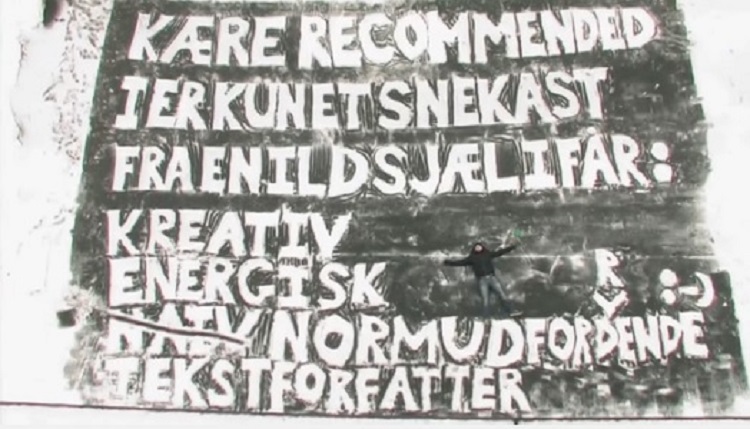 KÆRE RECOMMENDED
I ER KUN ET SNEKAST
FRA EN ILDSJÆL I FÅR:
KREATIV
ENERGISK :-)
NAIV NORMUDFORDRENDE
TEKSTFORFATTER